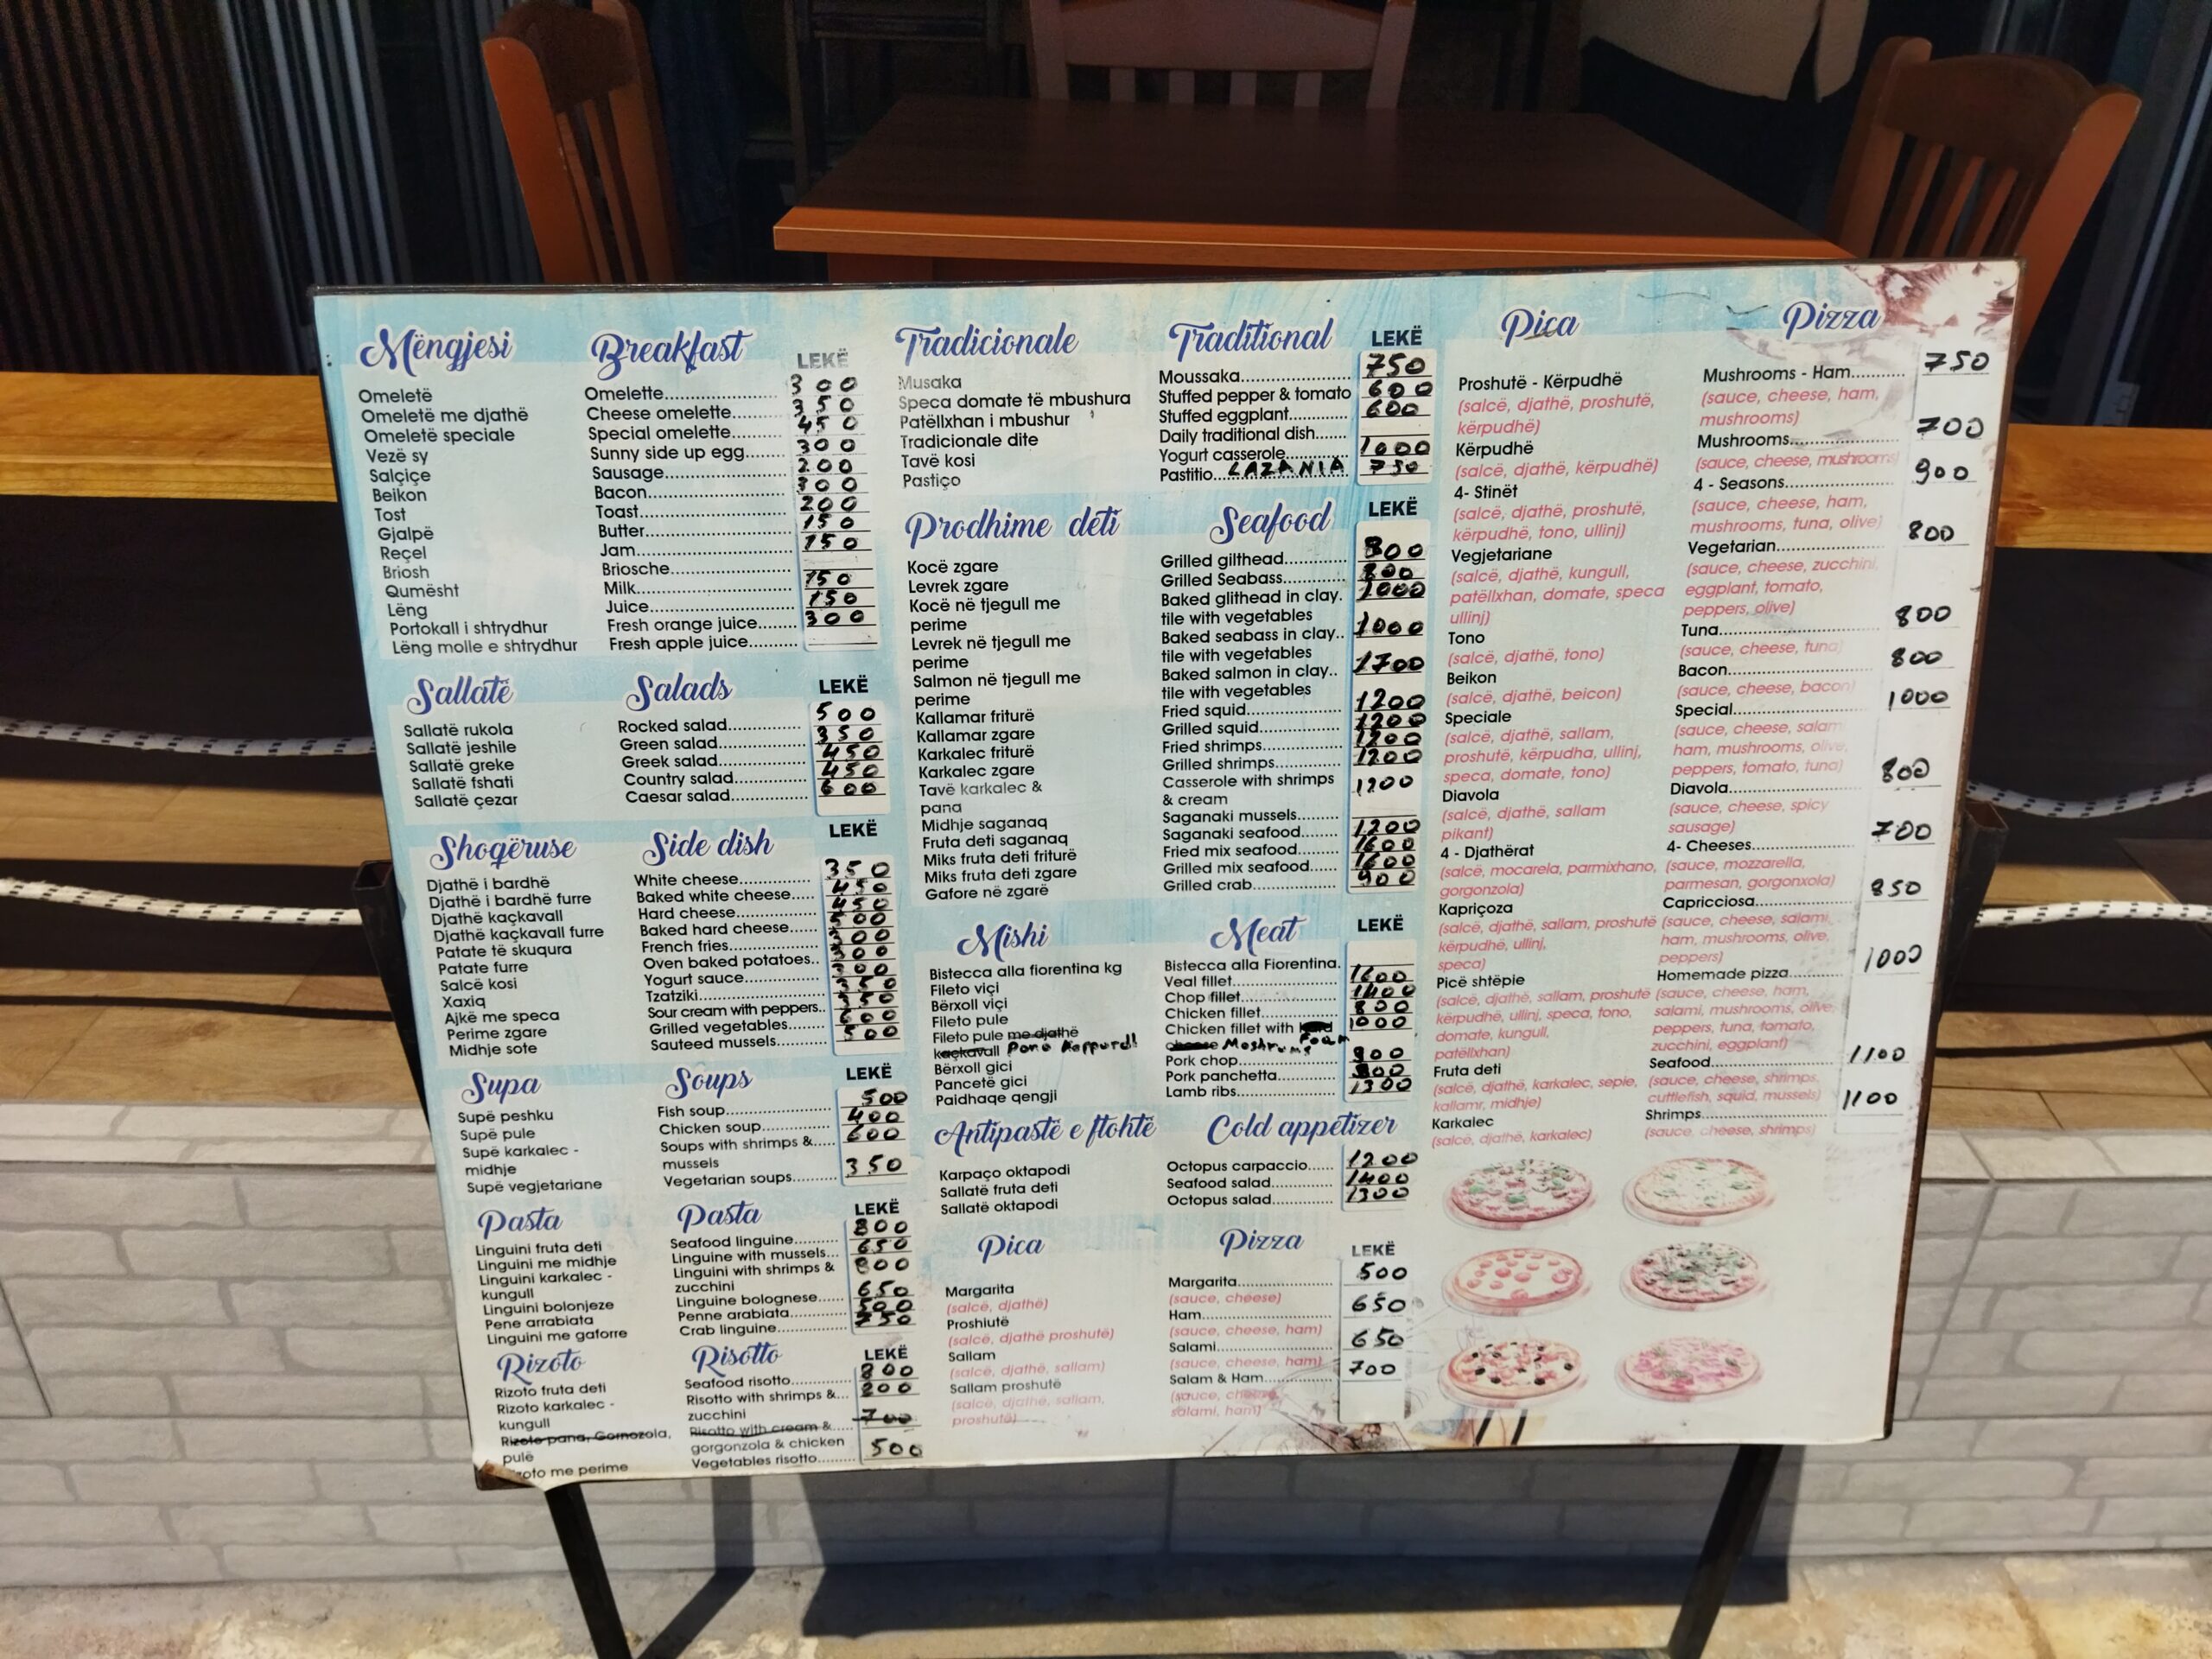 Mëngjesi Breakfast LEKË
Omeletë Omelette 300
Omeletë me djathë Cheese omelette 350
Omeletë speciale Special omelette 450
Vezë sy Sunny side up egg 300
Salçiçe Sausage 200
Beikon Bacon 300
Tost Toast 200
Gjalpë Butter 150
Reçel Jam 150
Briosh Briosche
Qumësht Milk 150
Lëng Juice 150
Portokall i shtrydhur Fresh orange juice 300
Lëng molle e shtrydhur Fresh apple juice
Sallatë Salads LEKË
Sallatë rukola Rocked salad 500
Sallatë jeshile Green salad 350
Sallatë greke Greek salad 450
Sallatë fshati Country salad 450
Sallatë çezar Caesar salad 600
Shoqëruse Side dish LEKË
Djathë i bardhë White cheese 350
Djathë i bardhë furre Baked white cheese 450
Djathë kaçkavall Hard cheese 450
Djathë kaçkavall furre Baked hard cheese 500
Patate të skuqura French fries 300
Patate furre Oven baked potatoes 300
Salcë kosi Yogurt sauce 300
Xaxiq Tzatziki 350
Ajkë me speca Sour cream with peppers 350
Perime zgare Grilled vegetables 600
Midhje sote Sauteed mussels 500
Supa Soups LEKË
Supë peshku Fish soup 500
Supë pule Chicken soup 400
Supë karkalec - Soups with shrimps & 600
midhje mussels
Supë vegjetariane Vegetarian soups 350
Pasta Pasta LEKË
Linguini fruta deti Seafood linguine 800
Linguini me midhje Linguine with mussels 650
Linguini karkalec - Linguini with shrimps & 800
kungull zucchini
Linguini bolonjeze Linguine bolognese 650
Pene arrabiata Penne arabiata 500
Linguini me gaforre Crab linguine 750
Rizoto Risotto LEKË
Rizoto fruta deti Seafood risotto 800
Rizoto karkalec - Risotto with shrimps & 800
kungull zucchini
Rizoto pana, Gornozola, Risotto with cream & 700
pulë gorgonzola & chicken
zoto me perime Vegetables risotto 500
Tradicionale Traditional LEKË
Musaka Moussaka 750
Speca domate të mbushura Stuffed pepper & tomato 600
Patëllxhan i mbushur Stuffed eggplant 600
Tradicionale dite Daily traditional dish
Tavë kosi Yogurt casserole 1000
Pastiço Pastitio LAZANIA 750
Prodhime deti Seafood LEKË
Kocë zgare Grilled gilthead 800
Levrek zgare Grilled Seabass 800
Kocë në tjegull me Baked glithead in clay. 1000
perime tile with vegetables
Levrek në tjegull me Baked seabass in clay.. 1000
perime tile with vegetables
Salmon në tjegull me Baked salmon in clay.. 1700
perime tile with vegetables
Kallamar friturë Fried squid 1200
Kallamar zgare Grilled squid 1200
Karkalec friturë Fried shrimps 1200
Karkalec zgare Grilled shrimps 1200
Tavë karkalec & Casserole with shrimps 1200
pana & cream
Midhje saganaq Saganaki mussels
Fruta deti saganaq Saganaki seafood 1200
Miks fruta deti friturë Fried mix seafood 1600
Miks fruta deti zgare Grilled mix seafood 1600
Gafore në zgarë Grilled crab 900
Mishi Meat LEKË
Bistecca alla fiorentina kg Bistecca alla Fiorentina.
Fileto viçi Veal fillet 1600
Bërxoll viçi Chop fillet 1400
Fileto pule Chicken fillet 800
Fileto pule me djathë Chicken fillet with 1000
kaçkavall
Bërxoll gici Pork chop 900
Pancetë gici Pork panchetta 800
Paidhaqe qengji Lamb ribs 1300
Antipastë e ftohtë Cold appetizer
Karpaço oktapodi Octopus carpaccio 1200
Sallatë fruta deti Seafood salad 1400
Sallatë oktapodi Octopus salad 1300
Pica Pizza LEKË
Margarita Margarita 500
(salcë, djathë) (sauce, cheese)
Proshiutë Ham 650
(salcë, djathë proshutë) (sauce, cheese, ham)
Sallam Salami 650
(salcë, djathë, sallam) (sauce, cheese, ham)
Sallam proshutë Salam & Ham 700
(salcë, djathë, sallam, (sauce, cheese,
proshutë) salami, ham)
Pica Pizza
Proshutë - Kërpudhë Mushrooms - Ham 750
(salcë, djathë, proshutë, (sauce, cheese, ham,
kërpudhë) mushrooms)
Kërpudhë Mushrooms 700
(salcë, djathë, kërpudhë) (sauce, cheese, mushrooms)
4- Stinët 4 - Seasons 900
(salcë, djathë, proshutë, (sauce, cheese, ham,
kërpudhë, tono, ullinj) mushrooms, tuna, olive)
Vegjetariane Vegetarian 800
(salcë, djathë, kungull, (sauce, cheese, zucchini,
patëllxhan, domate, speca eggplant, tomato,
ullinj) peppers, olive)
Tono Tuna 800
(salcë, djathë, tono) (sauce, cheese, tuna)
Beikon Bacon 800
(salcë, djathë, beicon) (sauce, cheese, bacon)
Speciale Special 1000
(salcë, djathë, sallam, (sauce, cheese, salam,
proshutë, kërpudha, ullinj, ham, mushrooms, olive,
speca, domate, tono) peppers, tomato, tuna)
Diavola Diavola 800
(salcë, djathë, sallam (sauce, cheese, spicy
pikant) sausage)
4 - Djathërat 4- Cheeses 700
(salcë, mocarela, parmixhano, (sauce, mozzarella,
gorgonzola) parmesan, gorgonxola)
Kapriçoza Capricciosa 850
(salcë, djathë, sallam, proshutë (sauce, cheese, salami,
kërpudhë, ullinj, ham, mushrooms, olive,
speca) peppers)
Picë shtëpie Homemade pizza 1000
(salcë, djathë, sallam, proshutë (sauce, cheese, ham,
kërpudhë, ullinj, speca, tono, salami, mushrooms, olive,
domate, kungull, peppers, tuna, tomato,
patëllxhan) zucchini, eggplant)
Fruta deti Seafood 1100
(salcë, djathë, karkalec, sepie, (sauce, cheese, shrimps,
kallamr, midhje) cuttlefish, squid, mussels)
Karkalec Shrimps 1100
(salcë, djathë, karkalec) (sauce, cheese, shrimps)